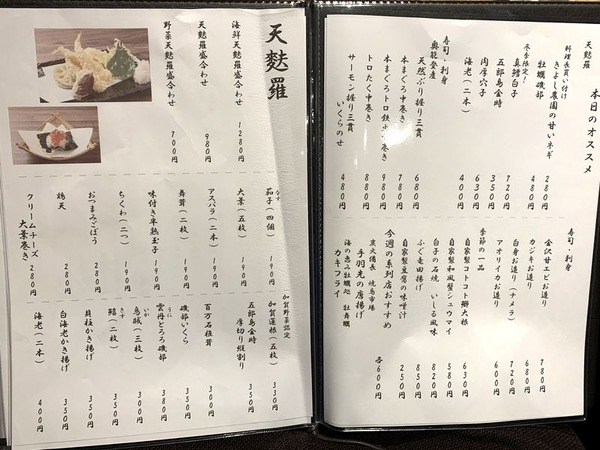 本日のオススメ
天麩羅
料理長買い付け
きよし農園の甘いネギ 280円
牡蠣磯部 480円
冬季限定！
真鱈白子 720円
五郎島金時 350円
肉厚穴子 630円
海老（二本） 400円
寿司・刺身
奥能登産
天然ぶり握り三貫 680円
本まぐろ中巻き 780円
本まぐろトロ鉄火巻き 980円
トロたく中巻き 880円
サーモン握り三貫
いくらのせ 480円
寿司・刺身
金沢甘エビお造り 780円
カジキお造り 680円
白身お造り（ナメラ） 720円
アオリイカお造り 600円
季節の一品
自家製コトコト鰤大根 630円
自家製和風豚シュウマイ 580円
白子の石焼 いしる風味 850円
ふぐ竜田揚げ 820円
自家製豆腐の味噌汁 250円
今週の系列店おすすめ
炭火備長 焼鳥市場
手羽先の唐揚げ
海の恵み牡蠣処 牡蠣鯛
カキフライ
各600円
天麩羅
海鮮天麩羅盛合わせ 1280円
天麩羅盛合わせ 980円
野菜天麩羅盛合わせ 700円
茄子（四個） 190円
なす
大葉（五枚） 190円
アスパラ（二本） 190円
舞茸（二枚） 190円
味付き半熟玉子 190円
ちくわ（二つ） 190円
おつまみごぼう 280円
鶏天 280円
クリームチーズ
大葉巻き 280円
加賀野菜認定
加賀蓮根（五枚） 330円
五郎島金時
厚切り縦割り 350円
百万石椎茸 350円
磯部いくら 350円
雲丹とろろ磯部 380円
うに
烏賊（三枚） 350円
いか
鱚（二枚） 350円
きす
貝柱かき揚げ 350円
白海老かき揚げ 350円
海老（二本） 400円